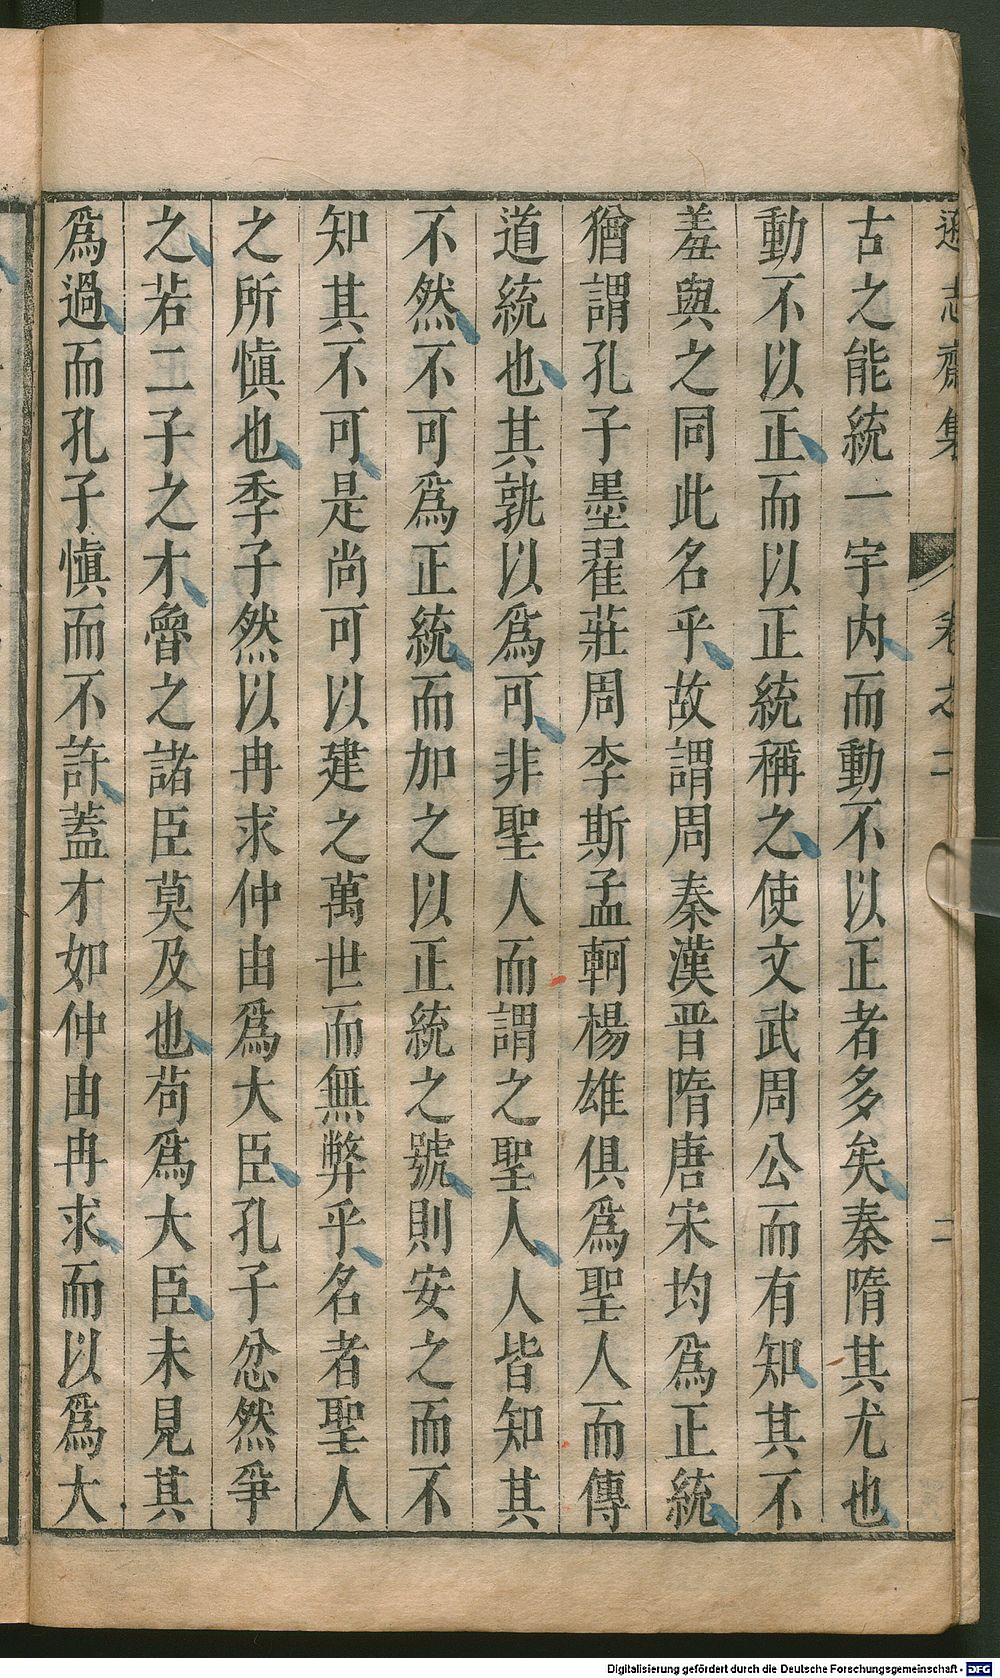 遜志齋集 卷之二 二
古之能統一宇内而動不以正者多矣秦隋其尤也
動不以正而以正統稱之使文武周公而有知其不
羞與之同此名乎故謂周秦漢晋隋唐宋均爲正統
猶謂孔子墨翟莊周李斯孟軻楊雄俱爲聖人而傳
道統也其孰以爲可非聖人而謂之聖人人皆知其
不然不可爲正統而加之以正統之號則安之而不
知其不可是尚可以建之萬世而無弊乎名者聖人
之所慎也季子然以冉求仲由爲大臣孔子忿然爭
之若二子之才魯之諸臣莫及也苟爲大臣未見其
爲過而孔子慎而不許蓋才如仲由冉求而以爲大
Digitalisierung gefördert durch die Deutsche Forschungsgemeinschaft - DFG